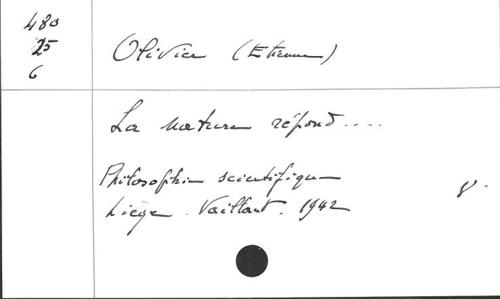 480
25
6
Olivier (Etienne)
La nature répond....
Philosophie scientifique
Liège. Vaillant. 1942
8°